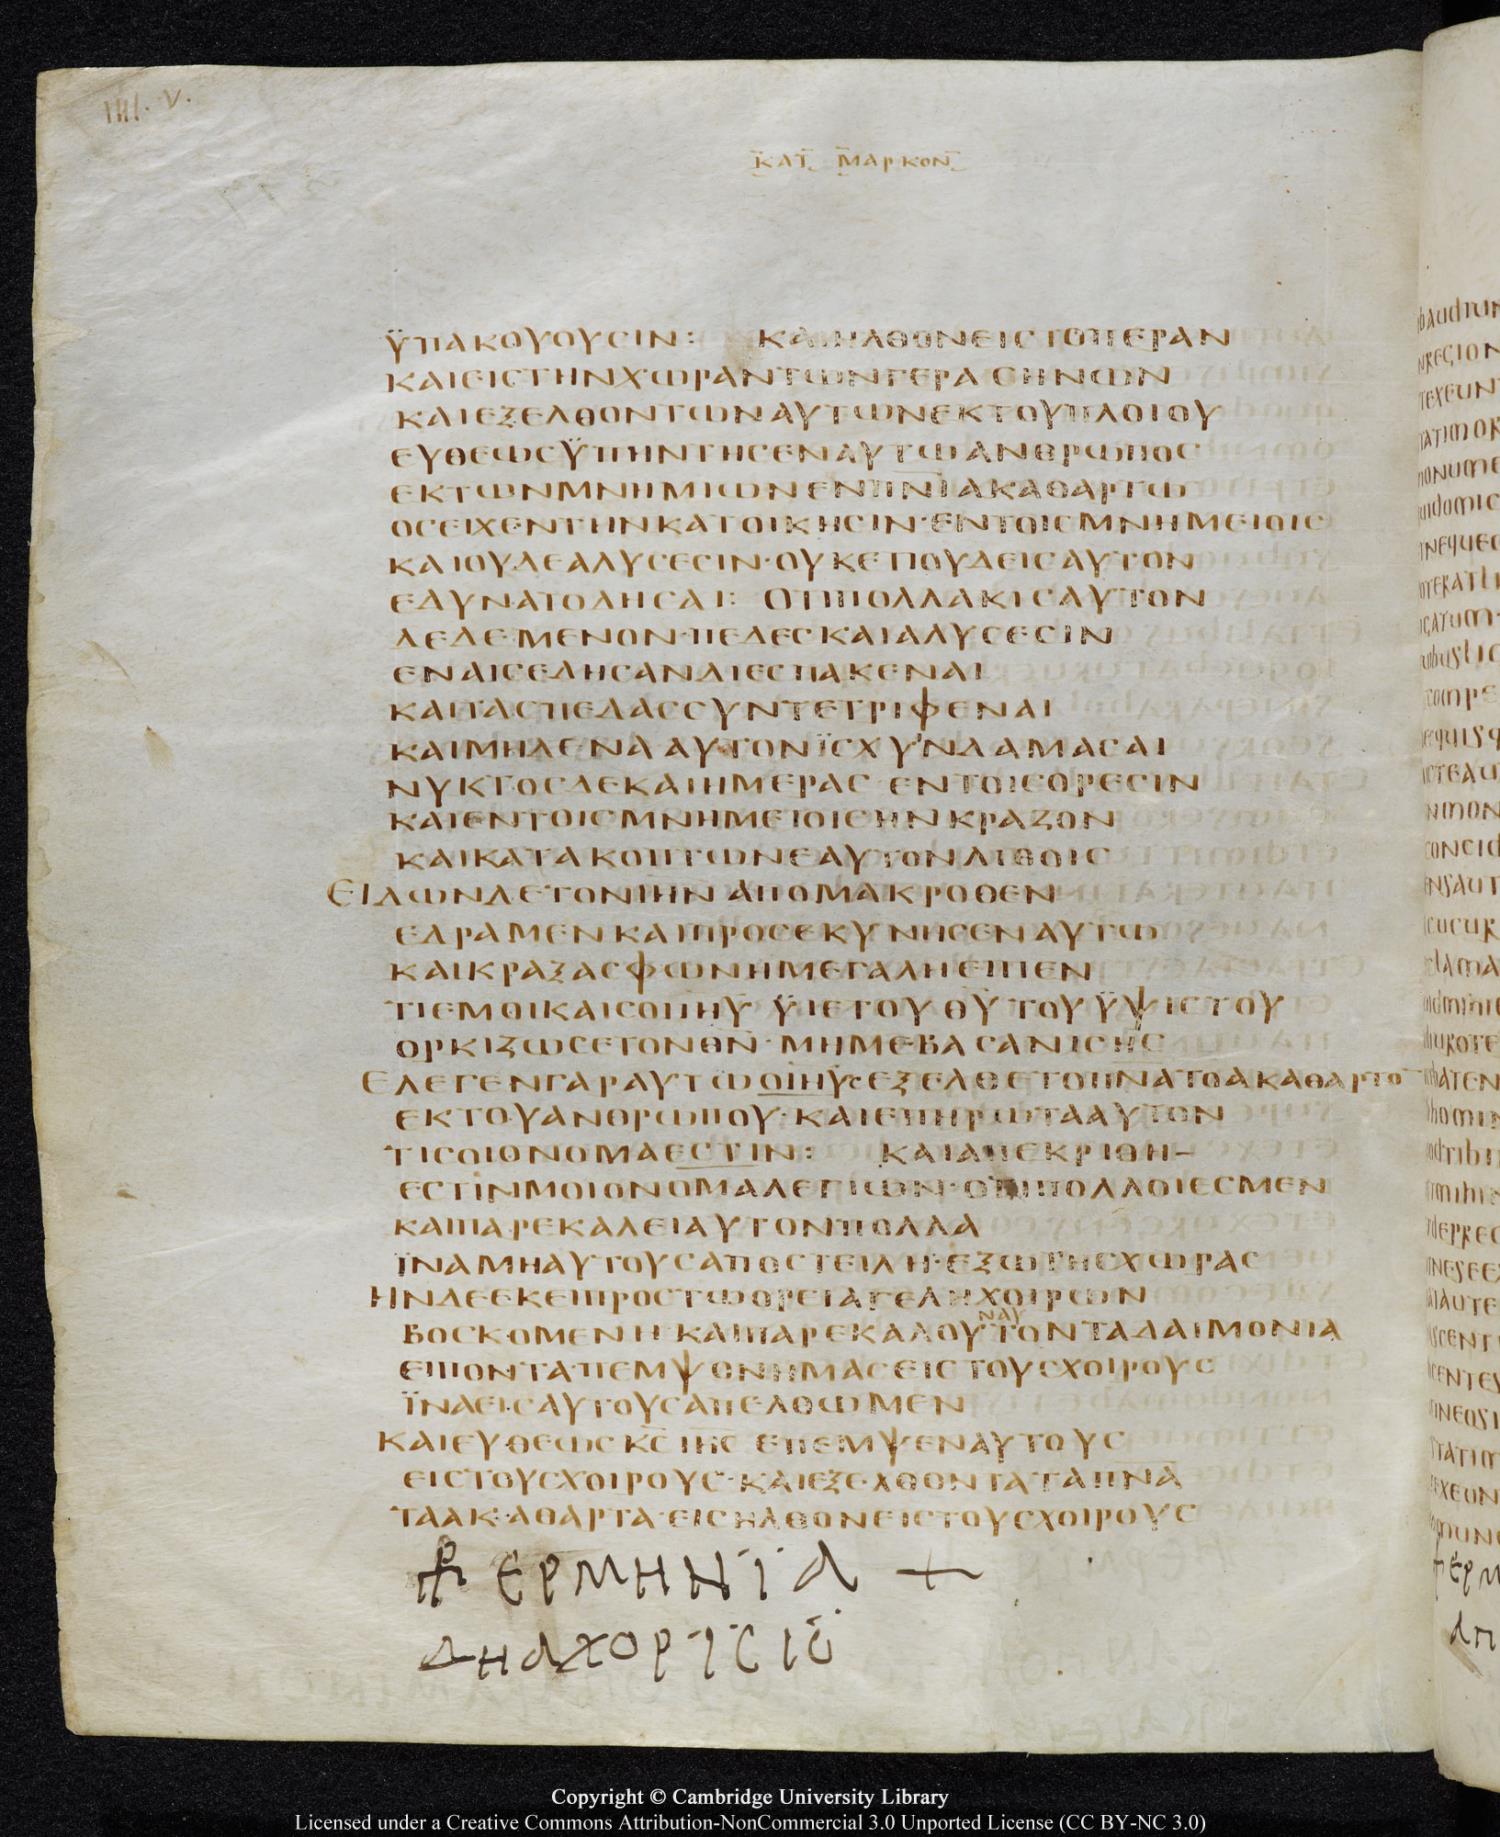 IIII. V.
ΚΑΤ ΜΑΡΚΟΝ
ΫΠΑΚΟΥΟΥCΙΝ: ΚΑΙΗΛΘΟΝΕΙCΤΟΠΕΡΑΝ
ΚΑΙΕΙCΤΗΝΧΩΡΑΝΤΩΝΓΕΡΑCΗΝΩΝ
ΚΑΙΕΞΕΛΘΟΝΤΩΝΑΥΤΩΝΕΚΤΟΥΠΛΟΙΟΥ
ΕΥΘΕΩCΫΠΗΝΤΗCΕΝΑΥΤΩΑΝΘΡΩΠΟC
ΕΚΤΩΝΜΝΗΜΙΩΝΕΝΠΝΙΑΚΑΘΑΡΤΩ
ΟCΕΙΧΕΝΤΗΝΚΑΤΟΙΚΗCΙΝ·ΕΝΤΟΙCΜΝΗΜΕΙΟΙC
ΚΑΙΟΥΔΕΑΛΥCΕCΙΝ·ΟΥΚΕΤΙΟΥΔΕΙCΑΥΤΟΝ
ΕΔΥΝΑΤΟΔΗCΑΙ: ΟΤΙΠΟΛΛΑΚΙCΑΥΤΟΝ
ΔΕΔΕΜΕΝΟΝ·ΠΕΔΕCΚΑΙΑΛΥCΕCΙΝ
ΕΝΑΙCΕΔΗCΑΝΔΙΕCΠΑΚΕΝΑΙ
ΚΑΙΤΑCΠΕΔΑCCΥΝΤΕΤΡΙΦΕΝΑΙ
ΚΑΙΜΗΔΕΝΑ ΑΥΤΟΝΪCΧΥΝΔΑΜΑCΑΙ
ΝΥΚΤΟCΔΕΚΑΙΗΜΕΡΑC ΕΝΤΟΙCΟΡΕCΙΝ
ΚΑΙΕΝΤΟΙCΜΝΗΜΕΙΟΙCΗΝΚΡΑΖΟΝ
ΚΑΙΚΑΤΑΚΟΠΤΩΝΕΑΥΤΟΝΛΙΘΟΙC
ΕΙΔΩΝΔΕΤΟΝΙΗΝ ΑΠΟΜΑΚΡΟΘΕΝ
ΕΔΡΑΜΕΝΚΑΙΠΡΟCΕΚΥΝΗCΕΝΑΥΤΩ
ΚΑΙΚΡΑΞΑCΦΩΝΗΜΕΓΑΛΗΕΙΠΕΝ
ΤΙΕΜΟΙΚΑΙCΟΙΙΗΥ ΫΙΕΤΟΥΘΥ ΤΟΥΫΨΙCΤΟΥ
ΟΡΚΙΖΩCΕΤΟΝΘΝ·ΜΗΜΕΒΑCΑΝΙCΗC
ΕΛΕΓΕΝΓΑΡΑΥΤΩΟΙΗΥCΕΞΕΛΘΕΤΟΠΝΑΤΟΑΚΑΘΑΡΤΟ
ΕΚΤΟΥΑΝΘΡΩΠΟΥ·ΚΑΙΕΠΗΡΩΤΑΑΥΤΟΝ
ΤΙCΟΙΟΝΟΜΑΕCΤΙΝ: ΚΑΙΑΠΕΚΡΙΘΗ
ΕCΤΙΝΜΟΙΟΝΟΜΑΛΕΓΙΩΝ·ΟΤΙΠΟΛΛΟΙΕCΜΕΝ
ΚΑΙΠΑΡΕΚΑΛΕΙΑΥΤΟΝΠΟΛΛΑ
ΪΝΑΜΗΑΥΤΟΥCΑΠΟCΤΕΙΛΗ·ΕΞΩΤΗCΧΩΡΑC
ΗΝΔΕΕΚΕΙΠΡΟCΤΩΟΡΕΙΑΓΕΛΗΧΟΙΡΩΝ
ΒΟCΚΟΜΕΝΗ·ΚΑΙΠΑΡΕΚΑΛΟΥΝΑΥΤΟΝΤΑΔΑΙΜΟΝΙΑ
ΕΙΠΟΝΤΑ·ΠΕΜΨΟΝΗΜΑCΕΙCΤΟΥCΧΟΙΡΟΥC
ΪΝΑΕΙCΑΥΤΟΥCΑΠΕΛΘΩΜΕΝ
ΚΑΙΕΥΘΕΩCΚC ΙΗC ΕΠΕΜΨΕΝΑΥΤΟΥC
ΕΙCΤΟΥCΧΟΙΡΟΥC·ΚΑΙΕΞΕΛΘΟΝΤΑΤΑΠΝΑ
ΤΑΑΚΑΘΑΡΤΑ·ΕΙCΗΛΘΟΝΕΙCΤΟΥCΧΟΙΡΟΥC
ΕΡΜΗΝΙΑ +
ΔΗΑΧΟΡΙCΙC
Copyright © Cambridge University Library
Licensed under a Creative Commons Attribution-NonCommercial 3.0 Unported License (CC BY-NC 3.0)